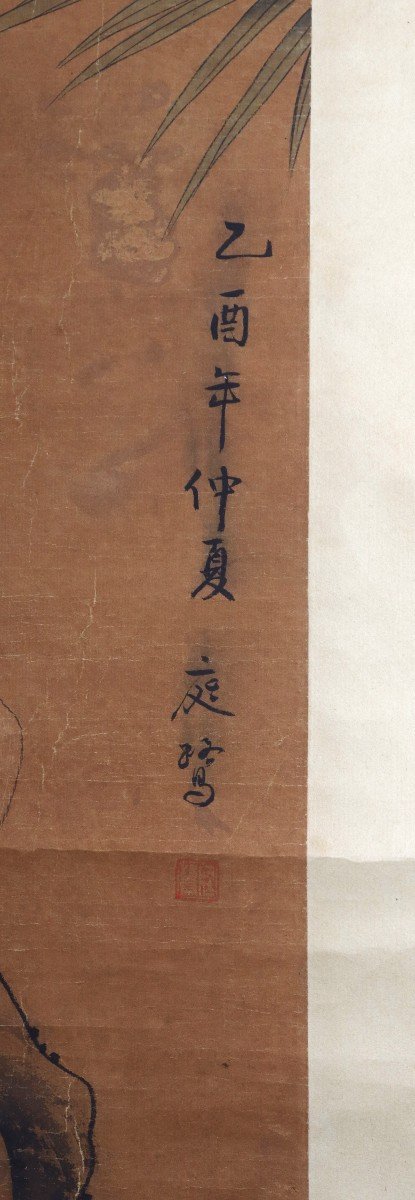 乙酉年仲夏 庭鷺